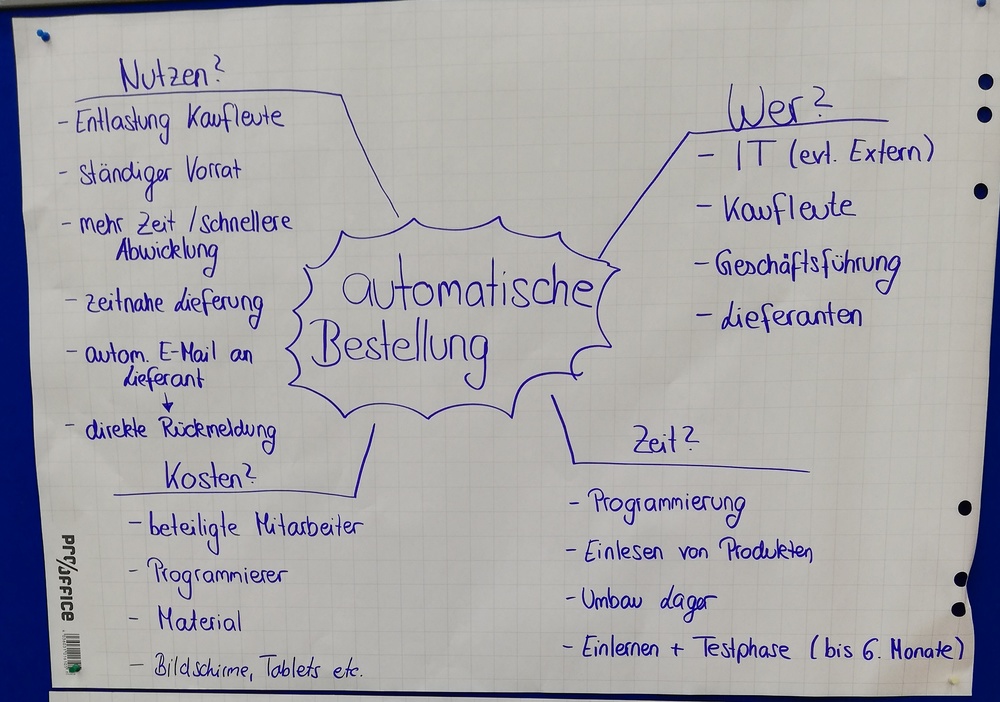 Nutzen?
- Entlastung Kaufleute
- ständiger Vorrat
- mehr Zeit / schnellere
Abwicklung
- zeitnahe Lieferung
- autom. E-Mail an
Lieferant
- direkte Rückmeldung
Wer?
- IT (evt. Extern)
- Kaufleute
- Geschäftsführung
- Lieferanten
automatische
Bestellung
Kosten?
- beteiligte Mitarbeiter
- Programmierer
- Material
- Bildschirme, Tablets etc.
Zeit?
- Programmierung
- Einlesen von Produkten
- Umbau Lager
- Einlernen + Testphase (bis 6. Monate)
pro/office